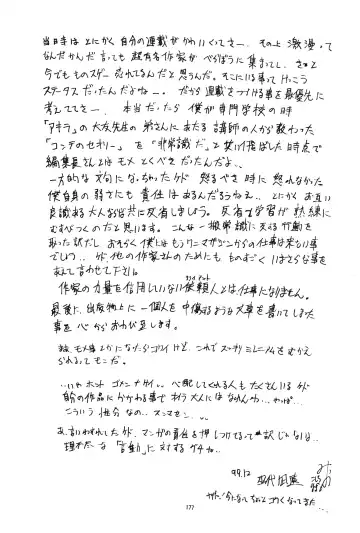 当時はとにかく自分の連載がかわいくてさー、その上 激漫って
なんだかんだ言っても超有名作家がべらぼうに集まってし、きっと
今でもものスゲー売れてるんだと思うんだ。そこにいる事ってけっこう
ステータスだったんだよねー。だから連載をつづける事を最優先に
考えててさー、本当だったら僕が専門学校の時
「アキラ」の大友先生の弟さんにあたる講師の人から教わった
「コンテのセオリー」を「非常識だ」と笑い飛ばした時点で
編集長さんとはモメとくべきだったんだよ、、
一方的な文句になちゃったケド 怒るべき時に怒れなかった
僕自身の弱さにも責任はあるんだろうねェ、、とにかくお互い
良識ある大人なら共に反省しましょう。反省も学習が熟練に
むすびつくのだと思います。こんな一般常識に反する行動を
取った訳だし おそらく僕にはもうワニマガジンからの仕事は来ない事
でしょう‥ケド、他の作家さんのためにも ものすごくいまさらな事を
あえて言わせて下さい。
作家の力量を信用していない依頼人とは仕事になりません。
クライアント
最後に、出版物上に一個人を中傷するような文章を書いてしまった
事を心からおわび足します。
まあ、モメ事エカになったらゴワイけど、これでスッキリミレニアムをむかえ
られるってモンだ。
‥いやホントゴメンナサイ。心配してくれる人もたくさんいるケド
自分の作品にかかわる事でオトナ大人にはなれんわ‥やっぱ‥
こういう性分なの‥スンマセン‥
あ、言いわすれしたケド、マンガの責任を押しつけてるって訳じゃないよ‥
理不尽な「言動」に対するグチね‥
99.12
現代風恵
177